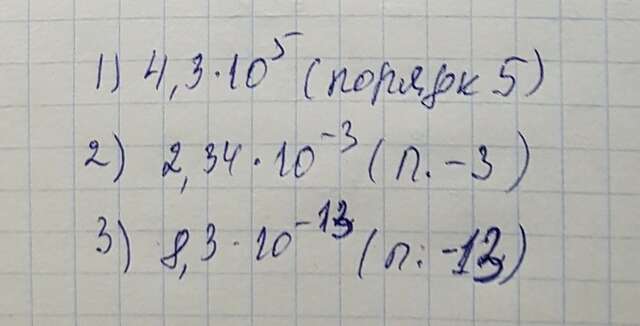 1) 4,3·10⁵ (порядк 5)
2) 2,34·10⁻³ (п. -3)
3) 8,3·10⁻¹³ (п: -13)